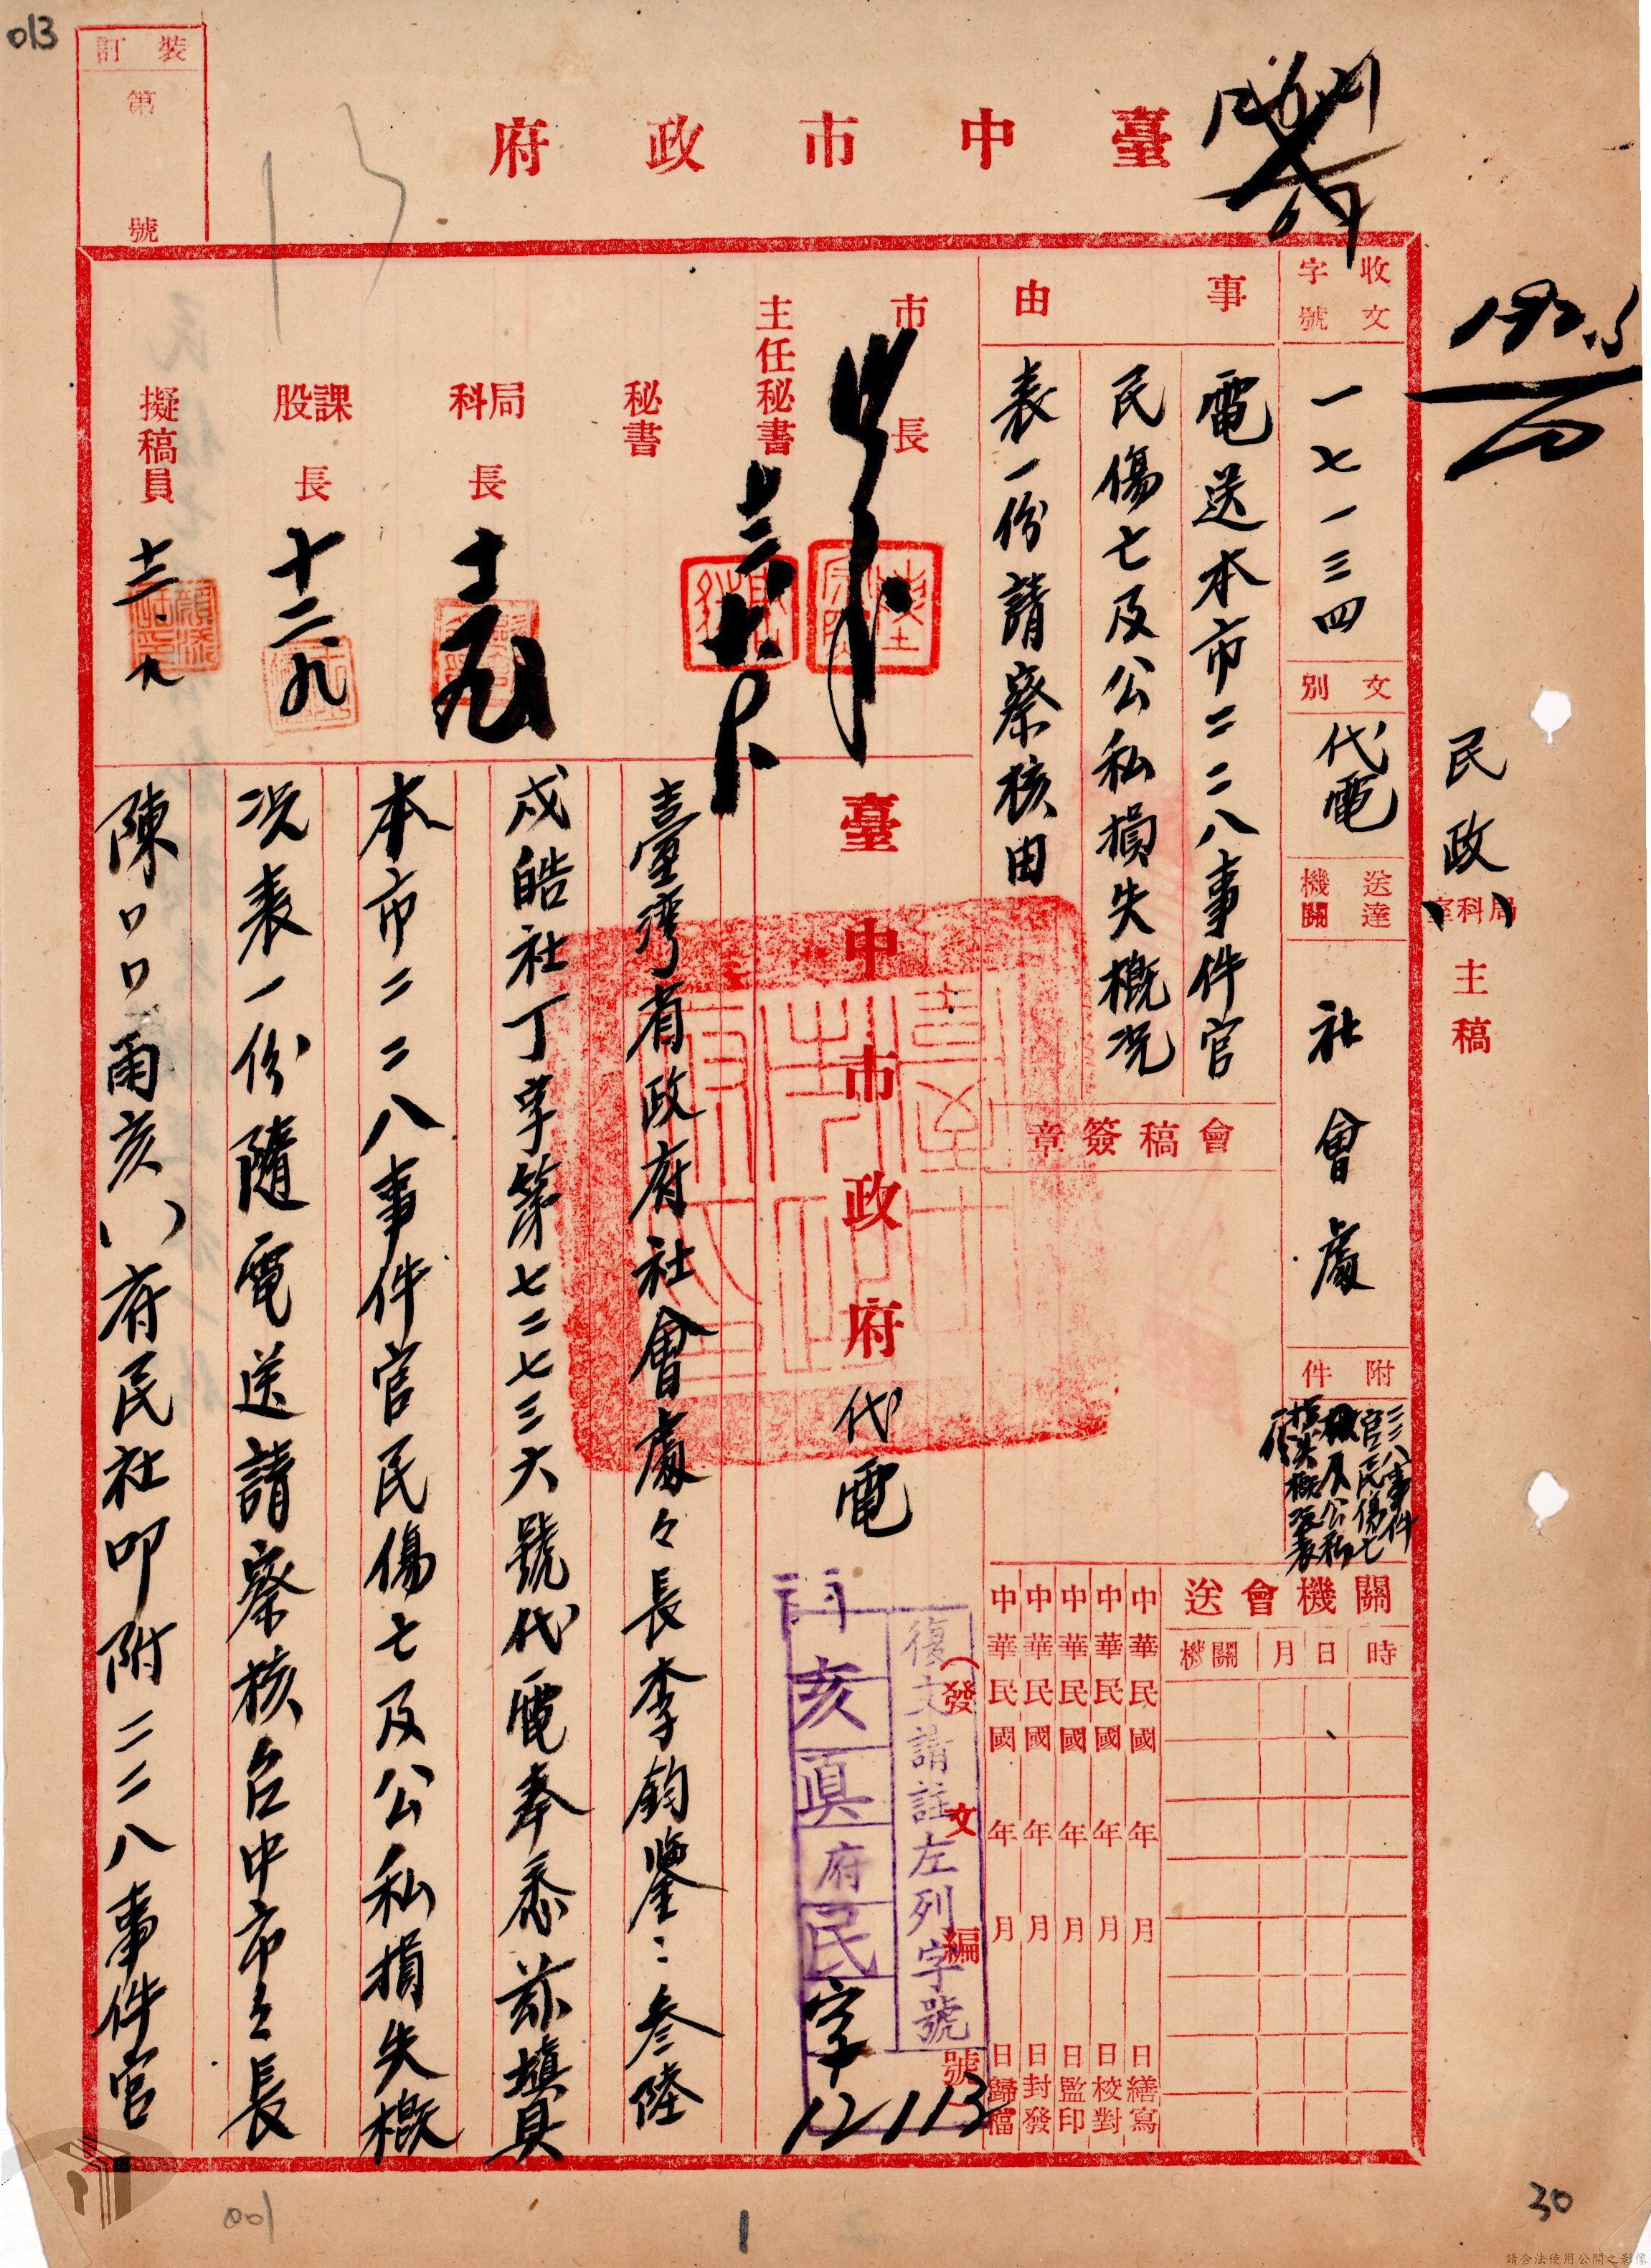 013
裝訂
第
號
臺中市政府
民政
局科室
主稿
收文
字號
一七一三四
文別
代電
送達
機關
社會處
附件
二二八事件
官民傷亡
及公私
損失概況表
一份
事由
電送本市二二八事件官
民傷亡及公私損失概況
表一份請察核由
會稿簽章
關機會送
時
日
月
機關
中華民國 年 月 日繕寫
中華民國 年 月 日校對
中華民國 年 月 日監印
中華民國 年 月 日封發
中華民國 年 月 日歸檔
市長
主任秘書
秘書
局科長
十二
課股長
十二.九
擬稿員
十二.九
臺中市政府代電
(發文編號
復文請註左列字號
亥真府民字
12113
臺灣省政府社會處々長李鈞鑒:叁陸
戌皓社丁字第七二七三六號代電奉悉茲填具
本市二二八事件官民傷亡及公私損失概
況表一份隨電送請察核台中市市長
陳口口雨亥( )府民社叩附二二八事件官
001
1
30
請合法使用公開之影像